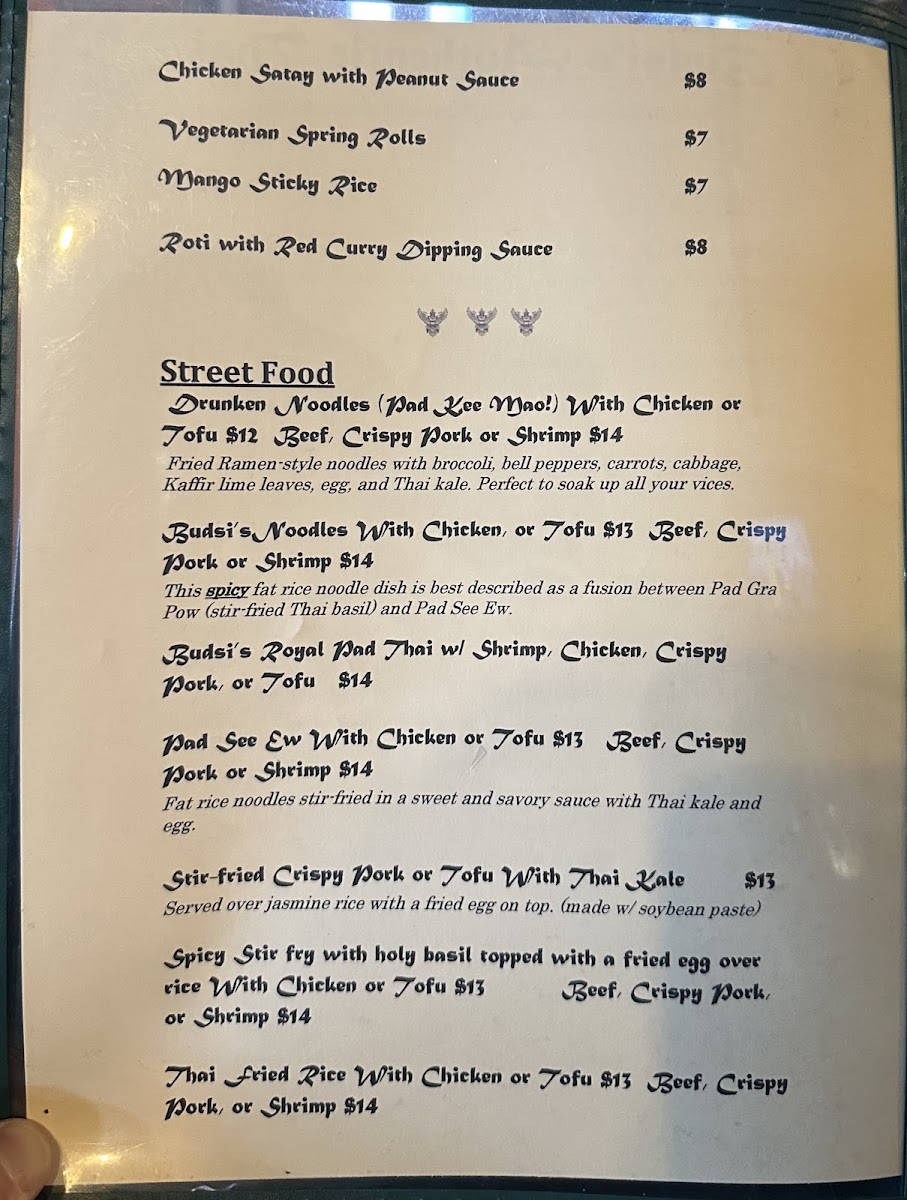 Chicken Satay with Peanut Sauce $8
Vegetarian Spring Rolls $7
Mango Sticky Rice $7
Roti with Red Curry Dipping Sauce $8
Street Food
Drunken Noodles (Pad Kee Mao!) With Chicken or
Tofu $12 Beef, Crispy Pork or Shrimp $14
Fried Ramen-style noodles with broccoli, bell peppers, carrots, cabbage,
Kaffir lime leaves, egg, and Thai kale. Perfect to soak up all your vices.
Budsi's Noodles With Chicken, or Tofu $13 Beef, Crispy
Pork or Shrimp $14
This spicy fat rice noodle dish is best described as a fusion between Pad Gra
Pow (stir-fried Thai basil) and Pad See Ew.
Budsi's Royal Pad Thai w/ Shrimp, Chicken, Crispy
Pork, or Tofu $14
Pad See Ew With Chicken or Tofu $13 Beef, Crispy
Pork or Shrimp $14
Fat rice noodles stir-fried in a sweet and savory sauce with Thai kale and
egg.
Stir-fried Crispy Pork or Tofu With Thai Kale $13
Served over jasmine rice with a fried egg on top. (made w/ soybean paste)
Spicy Stir fry with holy basil topped with a fried egg over
rice With Chicken or Tofu $13 Beef, Crispy Pork,
or Shrimp $14
Thai Fried Rice With Chicken or Tofu $13 Beef, Crispy
Pork, or Shrimp $14